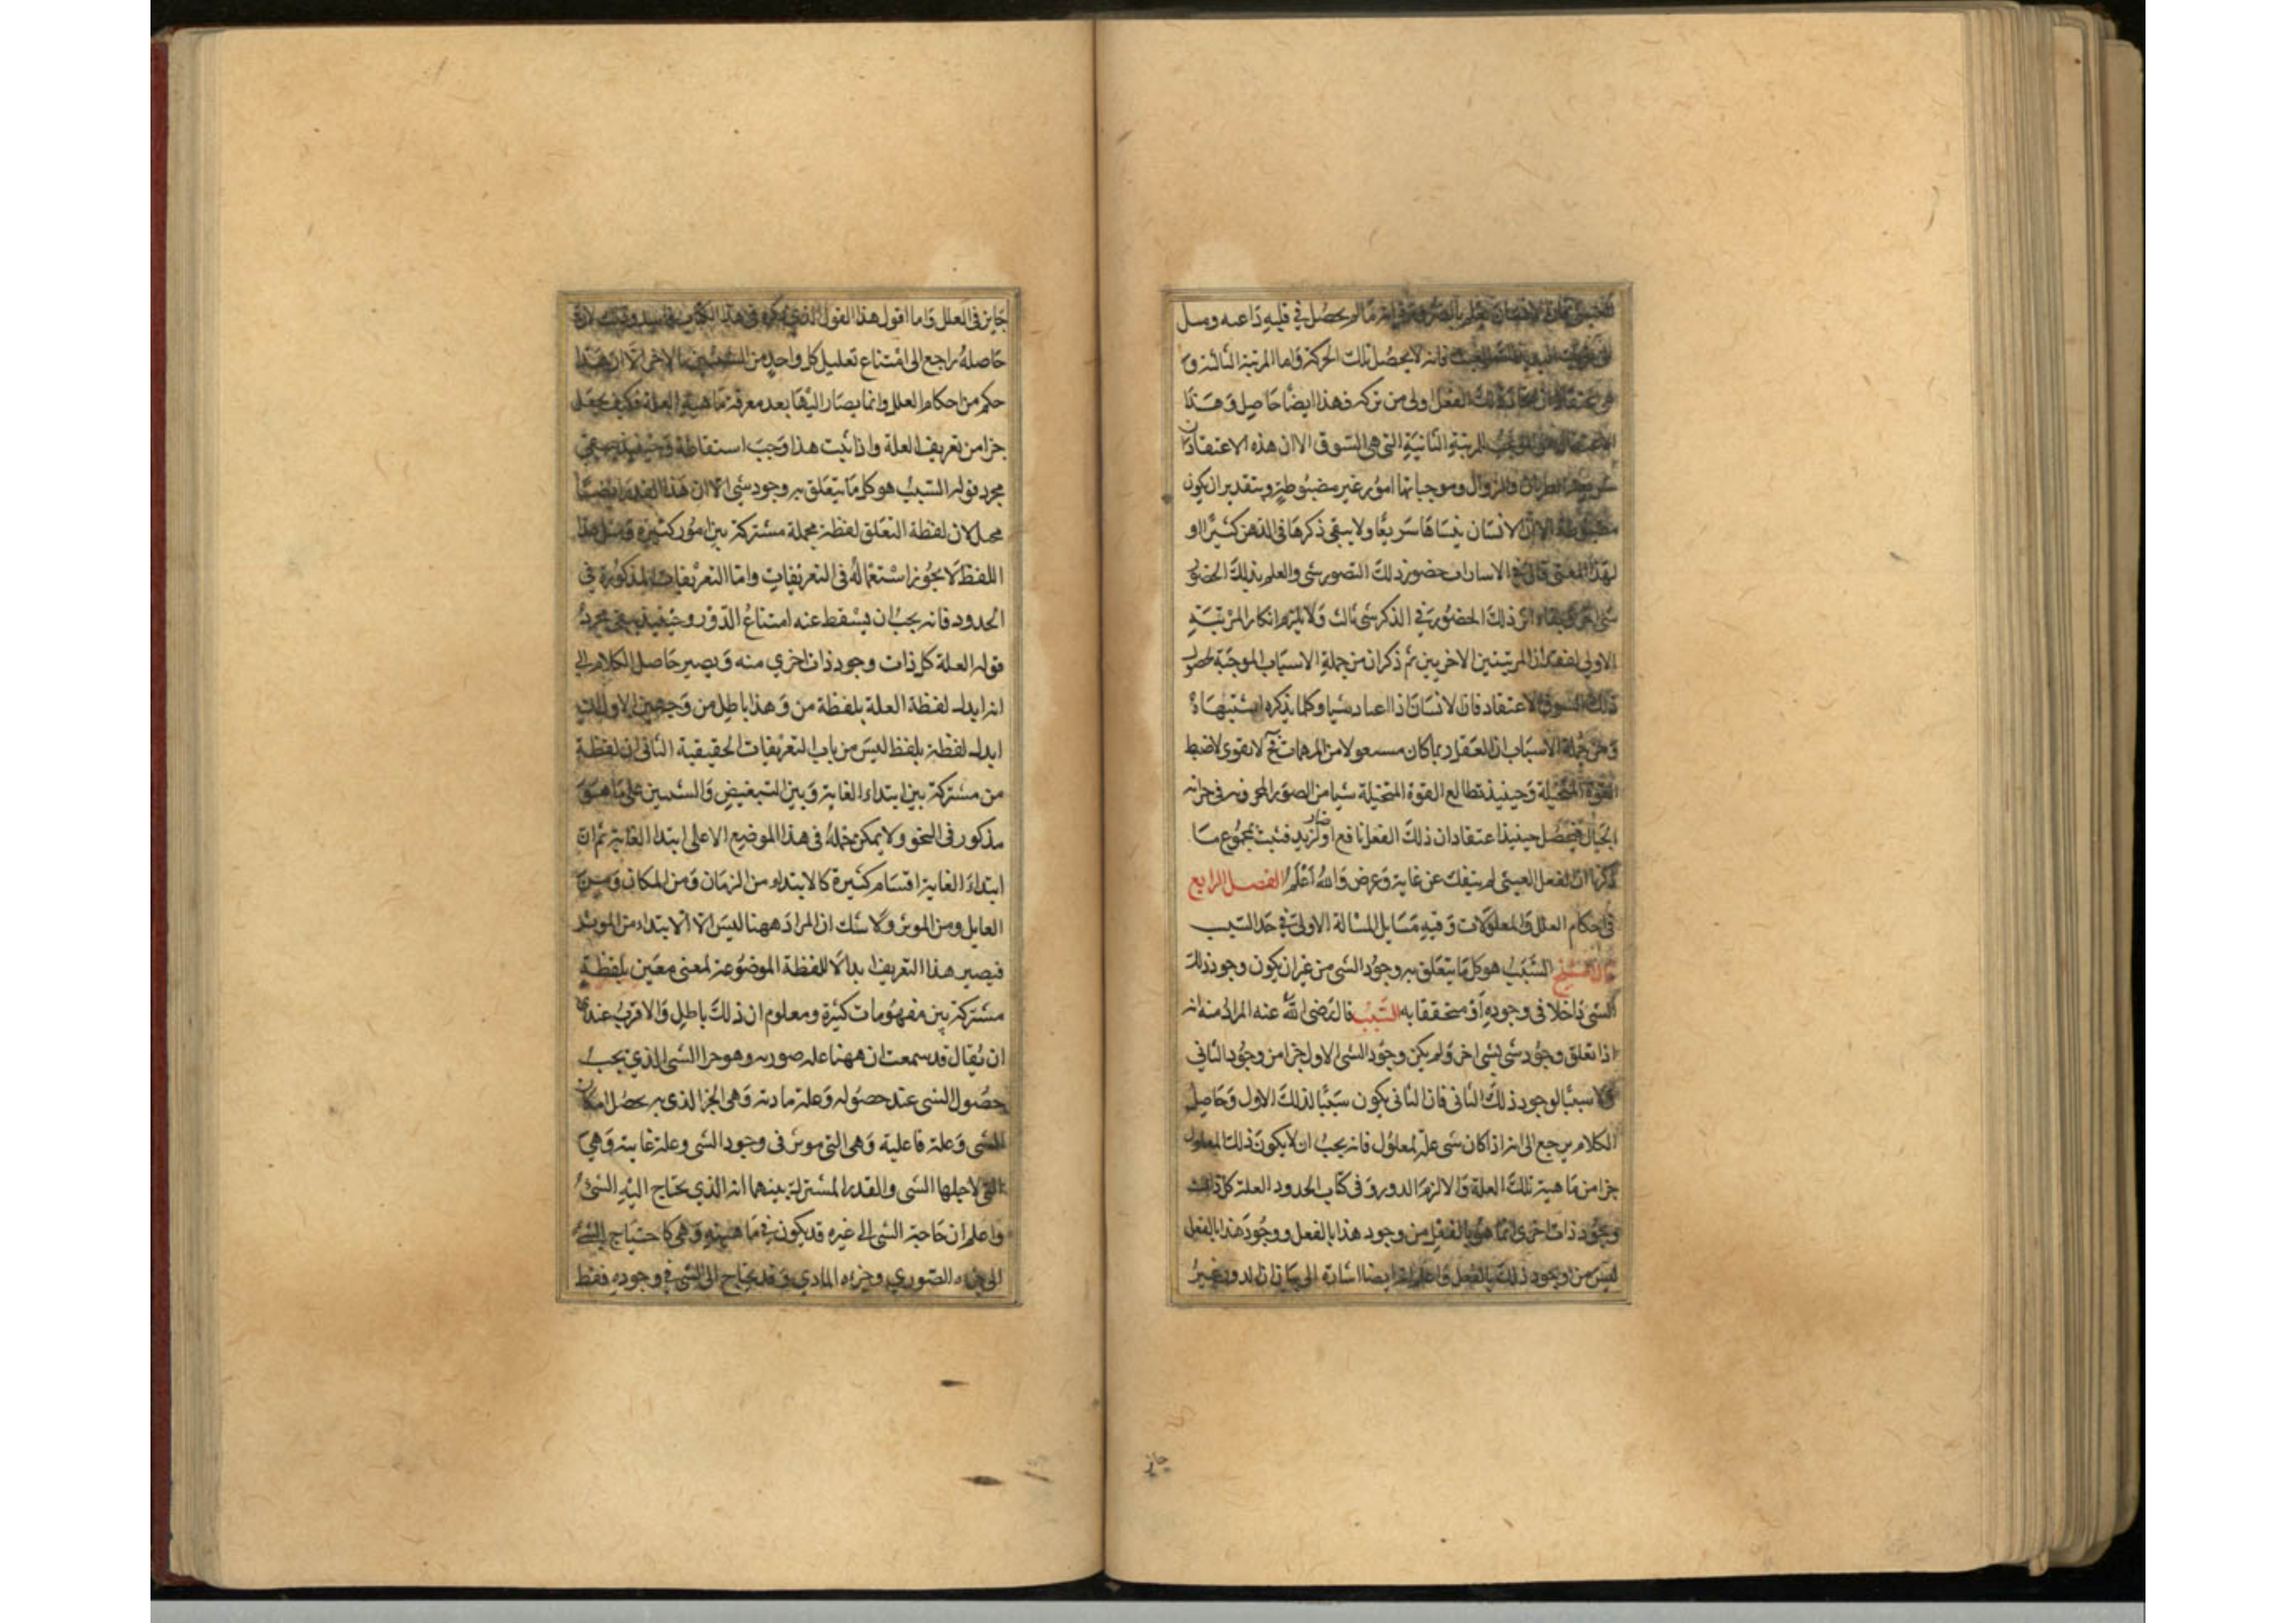 ما لم يحصل في قلبه داعيه وميل
فانه لا يحصل تلك الحركة واما المرتبة الثالثة و
الفعل اولى من تركه فهذا ايضا حاصل وهذا
للمرتبة الثانية التي هي الشوق الا ان هذه الاعتقادات
والزوال وموجباتها امور غير مضبوطة وبتقدير ان يكون
مضبوطة الا ان الانسان ينساها سريعا ولا يبقى ذكرها في الذهن كثيرا و
لهذا المعنى قال في الاشارات حضور ذلك التصور شي والعلم بذلك الحضور
شي اخر وبقاء اثر ذلك الحضور في الذكر شي ثالث ولا يلزم انكار المرتبة
الاولى لفقدان المرتبتين الاخريين ثم ذكر ان من جملة الاسباب الموجبة لحصول
ذلك الشوق الاعتقاد فان الانسان اذا اعتاد شيا وكلما يذكره اشتهاه
ومن جملة الاسباب ان العقل ربما كان مشغولا من المهمات فح لا يقوى لا ضبط
القوة المتخيلة وحينيذ تطالع القوة المتخيلة شيا من الصور المخزونه في خزانه
الخيال فيحصل حينيذ اعتقاد ان ذلك الفعل نافع او لذيذ فثبت بمجموع ما
ذكرنا ان الفعل العبثي لم ينفك عن غاية وغرض والله اعلم الفصل الرابع
في احكام العلل والمعلولات وفيه مسايل المسالة الاولى في حد السبب
قال الشيخ السبب هو كل ما يتعلق به وجود الشي من غير ان يكون وجود ذلك
الشي داخلا في وجوده او متحققا به السبب قال رضي الله عنه المراد منه انه
اذا تعلق وجود شي بشي اخر ولم يكن وجود الشي الاول جزا من وجود الثاني
ولا سببا لوجود ذلك الثاني فان الثاني يكون سببا لذلك الاول وحاصل
الكلام يرجع الى انه اذا كان شي علة لمعلول فانه يجب ان لا يكون ذلك المعلول
جزا من ماهية تلك العلة والا لزم الدور وفي كتاب الحدود العلة كل ذات
وجود ذات اخرى انما هو بالفعل من وجود هذا بالفعل ووجود هذا بالفعل
ليس من وجود ذلك بالفعل واعلم انه ايضا اشارة الى بيان ان الدور غير
جايز
جايز في العلل واما اقول هذا القول الذي ذكره في هذا الكتاب فاسد وذلك لان
حاصله راجع الى امتناع تعليل كل واحد من الشيئين بالاخر الا ان هذا
حكم من احكام العلل وانما يصار اليها بعد معرفة ماهية العلة فكيف يجعل
جزا من تعريف العلة واذا ثبت هذا وجب اسقاطه وحينيذ يبقى
مجرد قوله السبب هو كل ما يتعلق به وجود شي الا ان هذا القدر ايضا
مجمل لان لفظة التعلق لفظة مجملة مشتركة بين امور كثيرة ومثل هذا
اللفظ لا يجوز استعماله في التعريفات واما التعريفات المذكورة في
الحدود فانه يجب ان يسقط عنه امتناع الدور وحينيذ يبقى مجرد
قوله العلة كل ذات وجود ذات اخرى منه ويصير حاصل الكلام الى
انه ابدل لفظة العلة بلفظة من وهذا باطل من وجهين الاول ان
ابدال لفظة بلفظ ليس من باب التعريفات الحقيقية الثاني ان لفظة
من مشتركة بين ابتداء الغاية وبين التبعيض والتبيين على ما هو
مذكور في النحو ولا يمكن حمله في هذا الموضع الا على ابتدا الغاية ثم ان
ابتداء الغاية اقسام كثيرة كالابتداء من الزمان ومن المكان ومن
القابل ومن الموثر ولا شك ان المراد ههنا ليس الا الابتداء من الموثر
فيصير هذا التعريف ابدالا للفظة الموضوعة لمعنى معين بلفظة
مشتركة بين مفهومات كثيرة ومعلوم ان ذلك باطل والاقرب عندي
ان يقال قد سمعت ان ههنا علة صوريه وهو جزا الشي الذي يجب
حصول الشي عند حصوله وعلة مادية وهي الجزا الذي به يحصل امكان
الشي وعلة فاعلية وهي التي موثر في وجود الشي وعلة غاييه وهي
التي لاجلها الشي والقدر المشترك بينهما انه الذي يحتاج اليه الشي
واعلم ان حاجة الشي الى غيره قد يكون في ماهيته وهي كاحتياج الشي
الى جزءه الصوري وجزءه المادي وقد يحتاج الى الشي في وجوده فقط